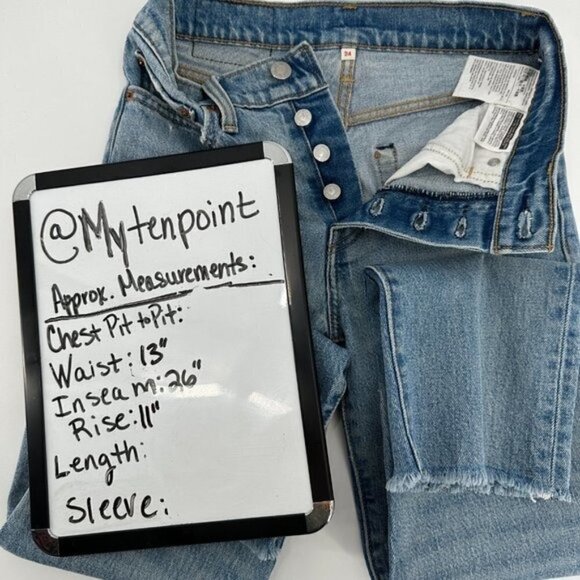 @Mytenpoint
Approx. Measurements:
Chest Pit to Pit:
Waist: 13"
Inseam: 26"
Rise: 11"
Length:
Sleeve: